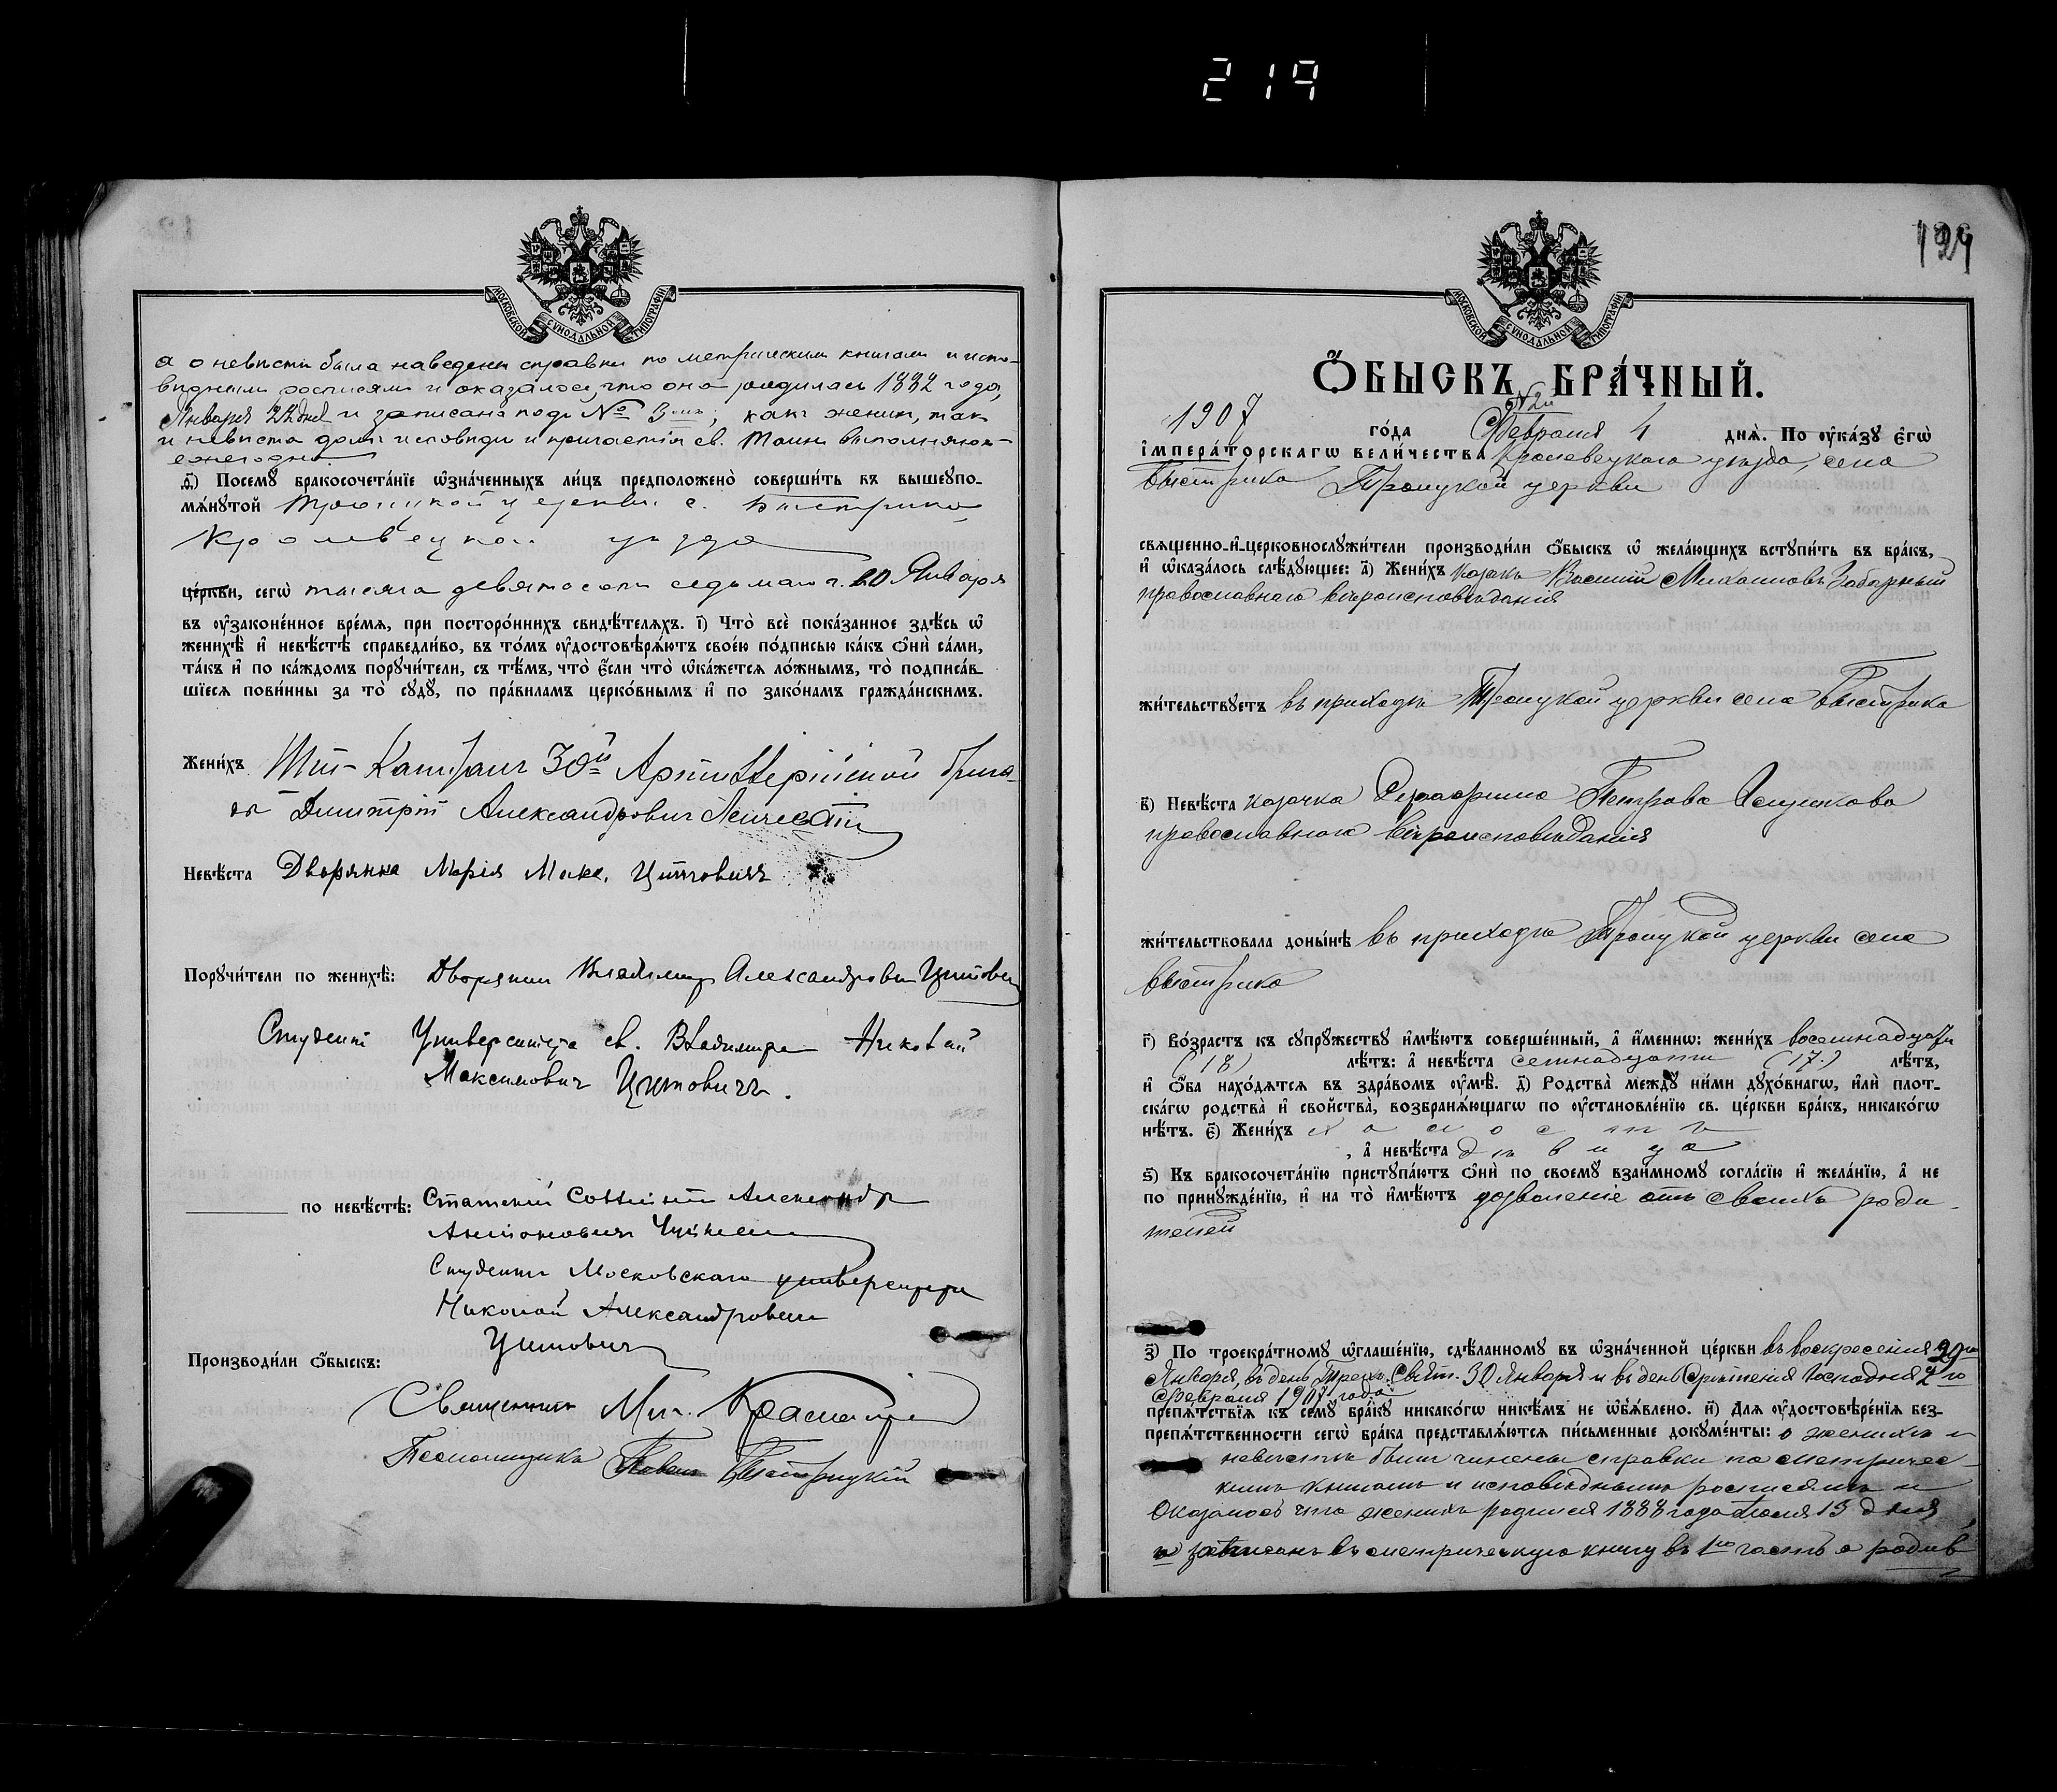 219
МОСКОВСКОЙ СѴНОДАЛЬНОЙ ТИПОГРАФІИ
а о невѣсти была наведены справки по метрическим книгам и испо-
вѣдным росписям и оказалось, что она родилась 1882 года,
Января 22 дня и записана подъ № 3, какъ женихъ, такъ
и невѣста долгъ исповѣди и причастія св. Таинъ выполняютъ
ежегодно.
ѳ҃) Посемꙋ бракосочета́нїе ѡзна́ченныхъ ли́цъ предположено̀ соверши́ть въ вышеꙋпо-
мѧ́нꙋтой Троицкой церкви с. Быстрика,
Кролевецкаго уѣзда
це́ркви, сегѡ̀ тысяча девятьсотъ седьмаго г. 20 Января
въ ᲂу҆законе́нное вре́мѧ, при посторо́ннихъ свидѣ́телѧхъ. і҃) Что̀ всѐ пока́занное здѣ́сь ѡ҆
женихѣ̀ и҆ невѣ́стѣ справедли́во, въ то́мъ ᲂу҆достовѣрѧ́ютъ свое́ю по́дписью ка́къ ѻ҆нѝ са́ми,
та́къ и҆ по ка́ждомъ порꙋчи́тели, съ тѣ́мъ, что̀ є҆́сли что̀ ѡ҆ка́жетсѧ ло́жнымъ, то̀ подписа́в-
шїесѧ пови́нны за то̀ сꙋдꙋ̀, по пра́виламъ церко́внымъ и҆ по зако́намъ гражда́нскимъ.
Жени́хъ Шт-Капитанъ 30й Артиллерійской брига-
ды Дмитрій Александрович
Невѣ́ста Дворянка Марія Макс. Цытовичъ
Порꙋчи́тели по женихѣ̀: Дворянин Владимир Александрович Цытович
Студентъ Университета св. Владимира Николай
Максимович Цытовичъ.
по невѣ́стѣ: Статскій Совѣтникъ Александр
Антонович
Студентъ Московскаго университета
Николай Александрович
Цытовичъ
Производи́ли ѻ҆́быскъ:
Священникъ Мих.
Псаломщикъ Павелъ Быстрицкій
129
МОСКОВСКОЙ СѴНОДАЛЬНОЙ ТИПОГРАФІИ
Ѻ҆́БЫСКЪ БРА́ЧНЫЙ.
№ 2й
1907 го́да Февраля 4 днѧ̀. По ᲂу҆ка́зꙋ є҆гѡ̀
і҆мпера́торскагѡ вели́чества Кролевецкаго уѣзда, села
Быстрика Троицкой церкви
свѧщенно-и҆-церковнослꙋжи́тели производи́ли ѻ҆́быскъ ѡ҆ жела́ющихъ вступи́ть въ бра́къ,
и҆ ѡ҆каза́лось слѣ́дꙋющее: а҃) Жени́хъ козакъ Василий Михаиловъ
православнаго вѣроисповѣданія
жи́тельствꙋетъ въ приходѣ Троицкой церкви села Быстрика
в҃) Невѣ́ста козачка Серафима Петрова
православнаго вѣроисповѣданія
жи́тельствовала доны́нѣ въ приходѣ Троицкой церкви села
Быстрика
г҃) Во́зрастъ къ сꙋпрꙋжествꙋ и҆мѣ́ютъ соверше́нный, а҆ и҆́меннѡ: жени́хъ восемнадцати
(18) лѣ́тъ: а҆ невѣ́ста семнадцати (17.) лѣ́тъ,
и҆ ѻ҆́ба нахо́дѧтсѧ въ здра́вомъ ᲂу҆мѣ̀. д҃) Родства̀ междꙋ̀ ни́ми дꙋхо́внагѡ, и҆лѝ плот-
ска́гѡ родства̀ и҆ свойства̀, возбранѧ́ющагѡ по ᲂу҆становле́нїю св. це́ркви бра́къ, никако́гѡ
нѣ́тъ. є҃) Жени́хъ холостъ
, а҆ невѣ́ста дѣвица
ѕ҃) Къ бракосочета́нїю пристꙋпа́ютъ ѻ҆нѝ по своемꙋ взаи́мномꙋ согла́сїю и҆ жела́нїю, а҆ не
по принꙋжде́нїю, и҆ на то̀ и҆мѣ́ютъ дозволеніе отъ своихъ роди-
телей
з҃) По троекра́тномꙋ ѡ҆глаше́нїю, сдѣ́ланномꙋ въ ѡ҆зна́ченной це́ркви въ воскресенія 29го
Января, въ день Трехъ Свят. 30 Января и въ день Срѣтенія Господня 2го
Февраля 1907 года
препѧ́тствїѧ къ семꙋ̀ бра́кꙋ никако́гѡ никѣ́мъ не ѡ҆б̾ѧ́влено. и҃) Длѧ ᲂу҆достовѣре́нїѧ без-
препѧ́тственности сегѡ̀ бра́ка представлѧ́ютсѧ пи́сьменные докꙋме́нты: о женихѣ и
невѣстѣ были чинены справки по метричес-
кимъ книгамъ и исповѣднымъ росписямъ и
оказалось что женихъ родился 1888 года Июля 13 дня,
и записанъ въ метрическую книгу въ 1ю часть о родив